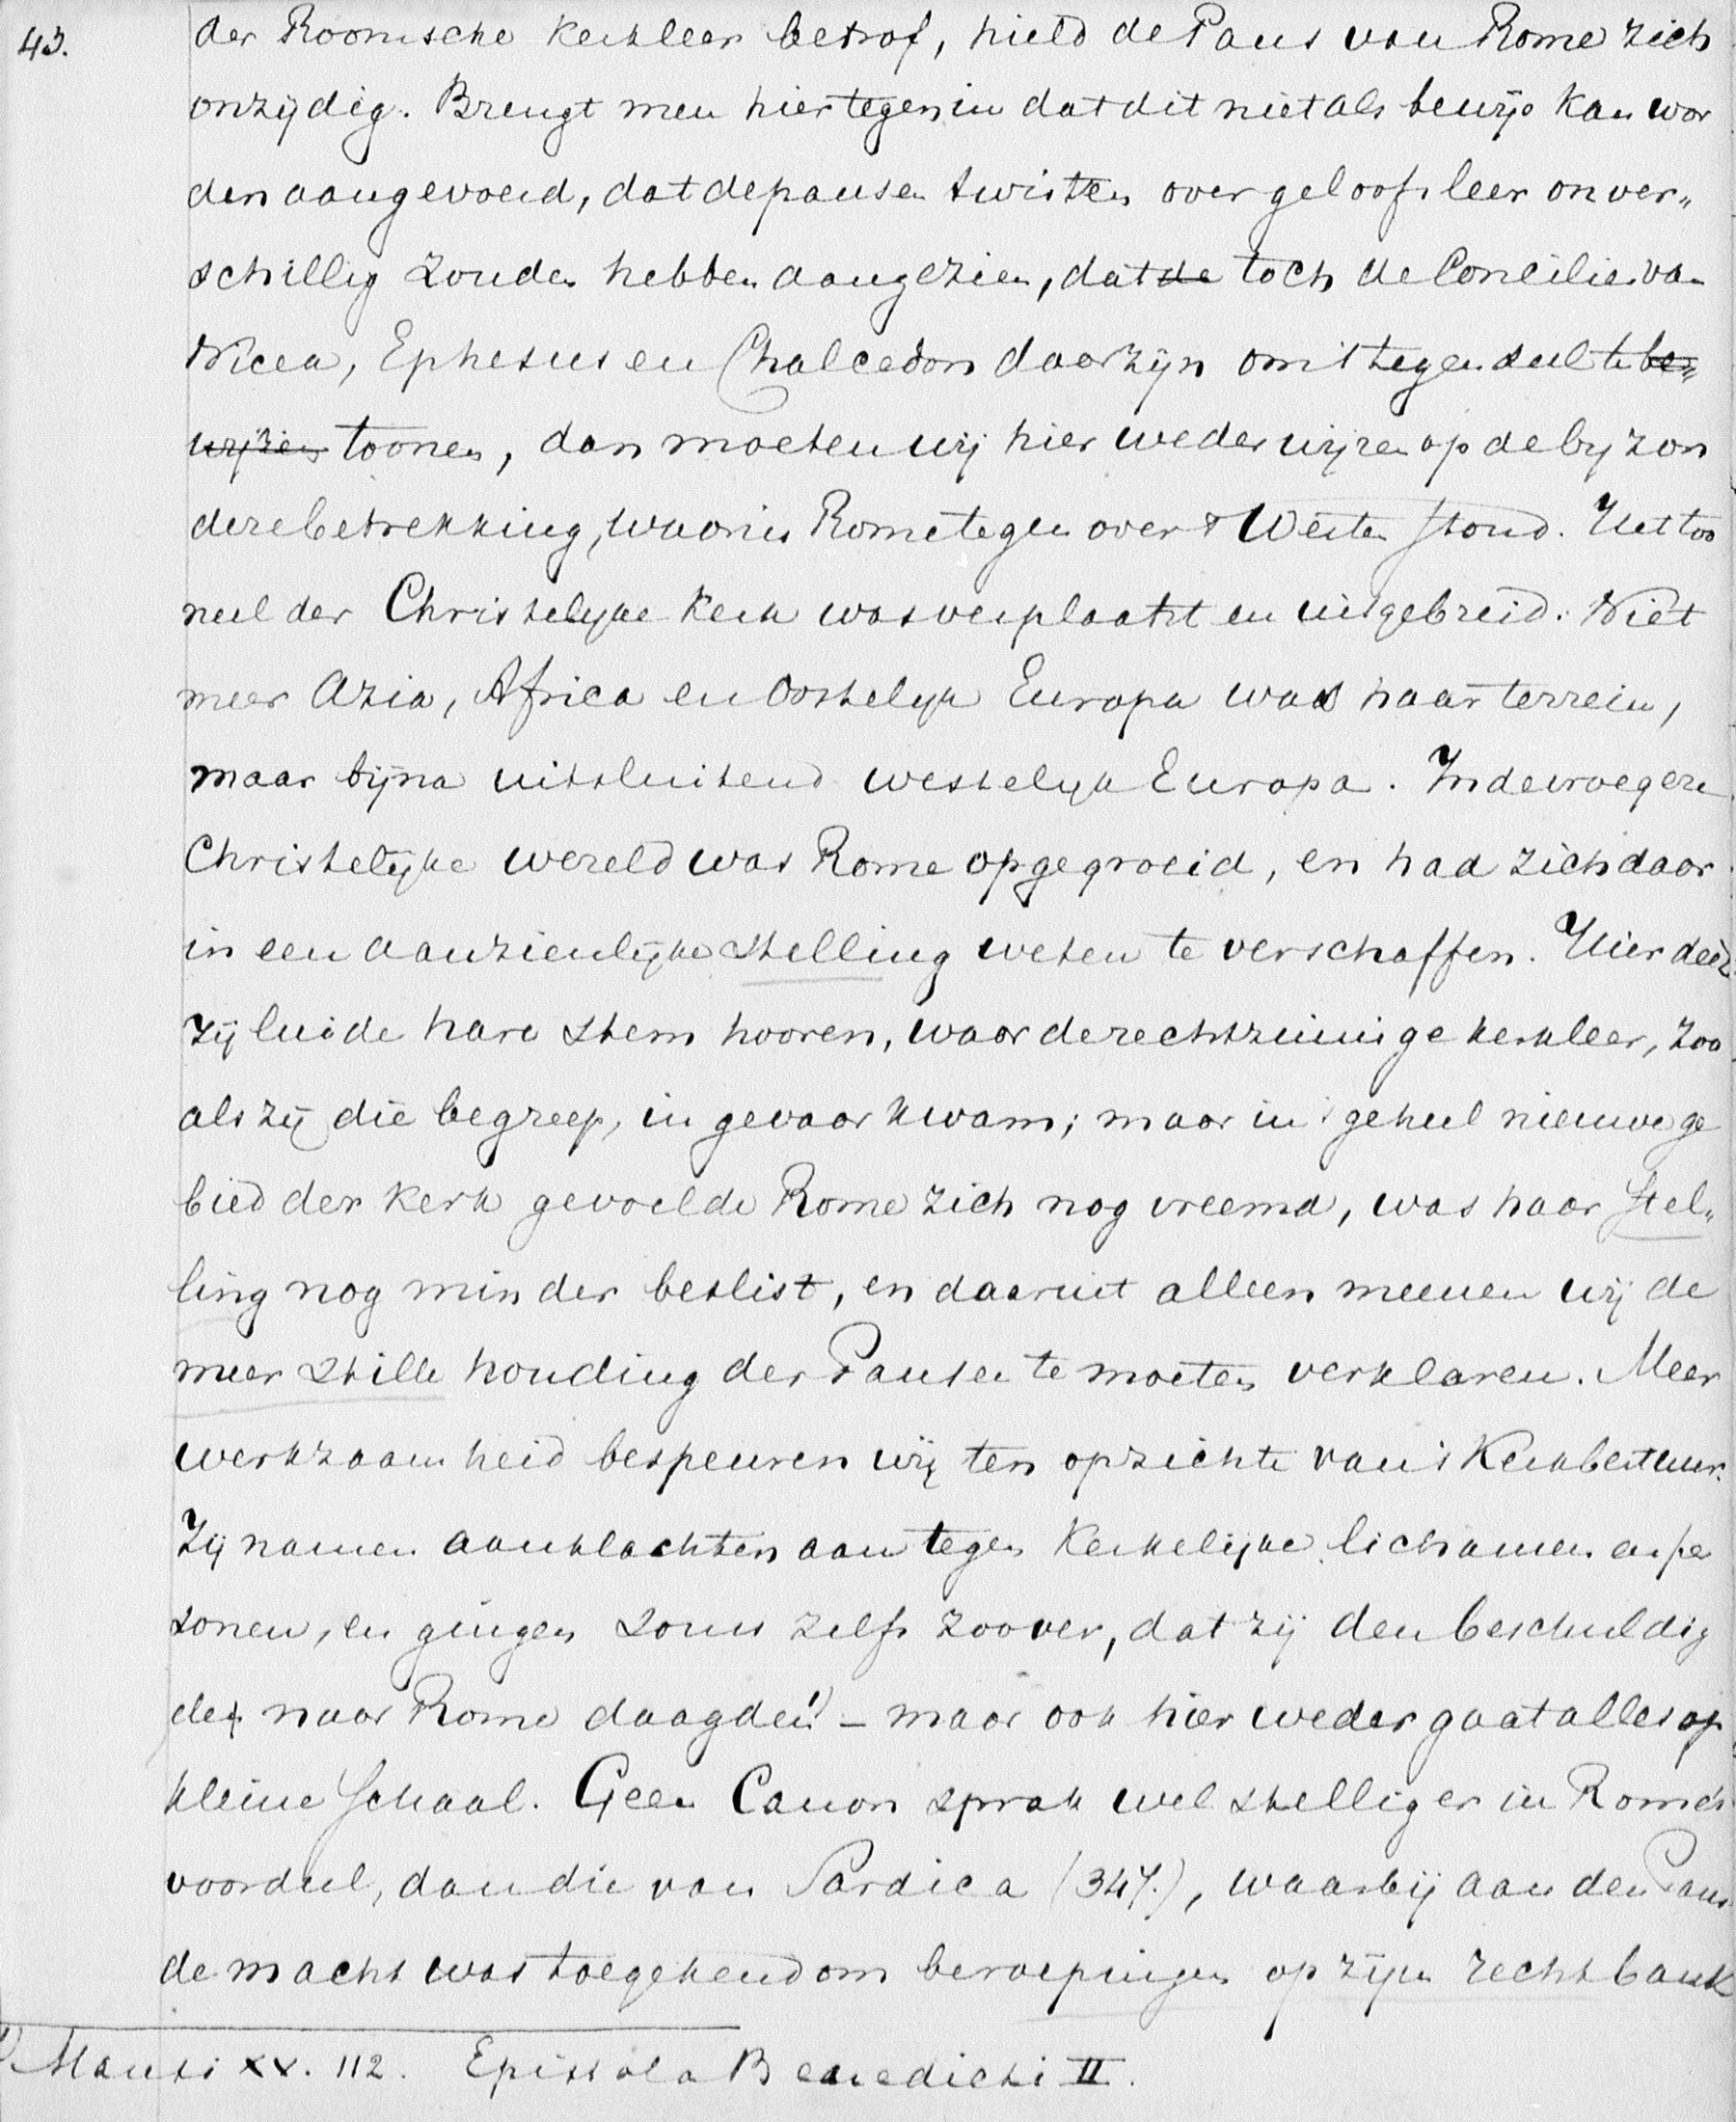 43.
der Roomsche kerkleer betrof, hield de Paus van Rome zich
onzijdig. Brengt men hier tegen in dat dit niet als bewijs kan wor
den aangevoerd, dat de pausen twisten over geloofsleer onver„
schillig zouden hebben aangezien, dat de toch de Conciliën van
Nicea, Ephesus en Chalcedon daar zijn om 't tegendeel te be„
wijzen toonen, dan moeten wij hier weder wijzen op de byzon
dere betrekking, waarin Rome tegenover 't Westen stond. Het too
neel der Christelyke Kerk was verplaatst en uitgebreid. Niet
meer Azia, Africa en Oostelyk Europa was haar terrein,
maar bijna uitsluitend westelyk Europa. In de vroegere
Christelyke wereld was Rome opgegroeid, en had zich daar
in een aanzienlyke stelling weten te verschaffen. Hier deed
zij luide hare stem hooren, waar de rechtzinnige kerkleer, zoo
als zij die begreep, in gevaar kwam; maar in 't geheel nieuwe ge
bied der Kerk gevoelde Rome zich nog vreemd, was haar stel„
ling nog minder beslist, en daaruit alleen meenen wij de
meer stille houding der Pausen te moeten verklaren. Meer
werkzaamheid bespeuren wij ten opzichte van 't Kerkbestuur.
Zij namen aanklachten aan tegen Kerkelijke lichamen en per
sonen, en gingen soms zelfs zoover, dat zij den beschuldig
de naar Rome daagden! 1) – maar ook hier weder gaat alles op
kleine schaal. Geen Canon sprak wel stelliger in Rome's
voordeel, dan die van Sardica (347.), waarbij aan den Paus
de macht was toegekend om beroepingen op zijn rechtbank
1) Mansi XX. 112. Epistola Benedicti II.